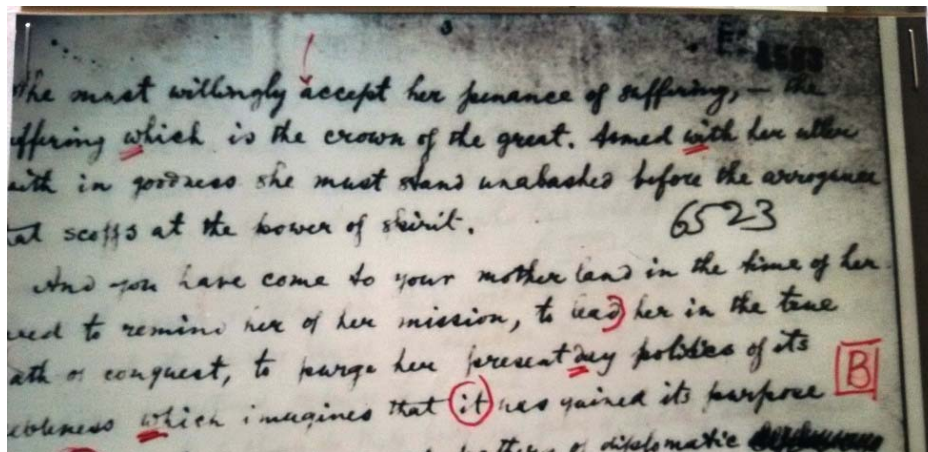 She must willingly accept her penance of suffering, — the
suffering which is the crown of the great. Armed with her utter
faith in goodness she must stand unabashed before the arrogance
that scoffs at the power of spirit.
6523
And you have come to your mother land in the time of her
need to remind her of her mission, to lead her in the true
path of conquest, to purge her present day politics of its
feebleness which imagines that it has gained its purpose
B
of diplomatic